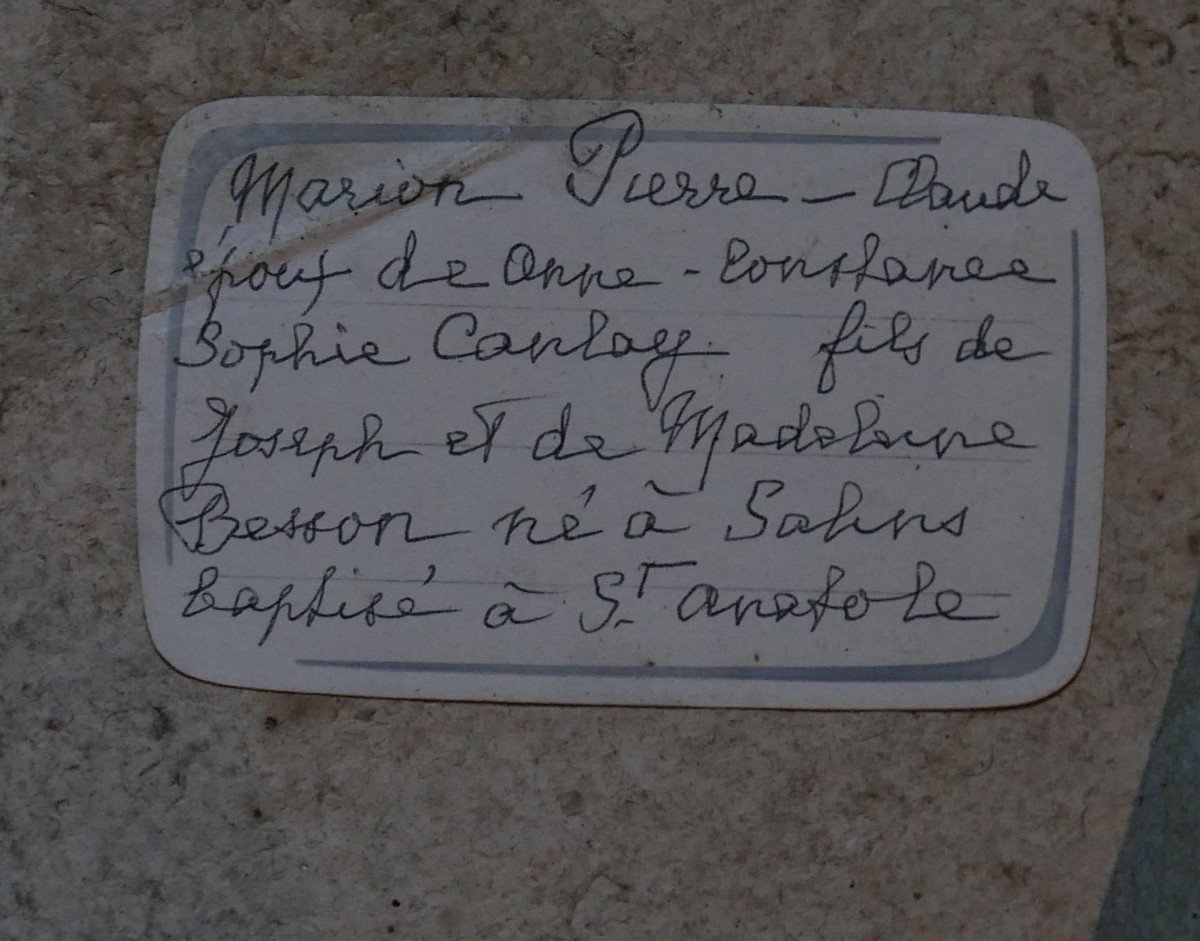 Marion Pierre - Claude
époux de Anne - Constance
Sophie Canlay fils de
Joseph et de Madeleine
Besson né à Salins
baptisé à St Anatole